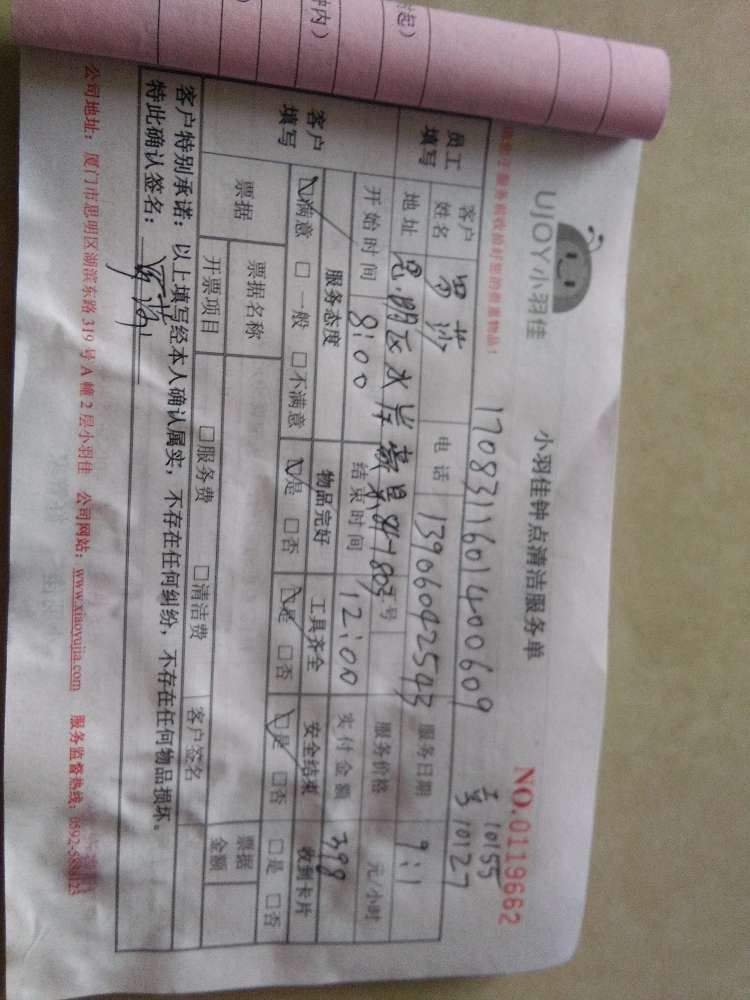 UJOY小羽佳
小羽佳钟点清洁服务单
NO.0119662
1708311601400609
10155
10127
员工填写
客户姓名
莎
电话
13906042543
服务日期
9:1
地址
思明区水岸
803号
服务价格
元/小时
开始时间
8:00
结束时间
12:00
实付金额
398
客户填写
服务态度
物品完好
工具齐全
安全结束
收到卡片
☑满意 □一般 □不满意
☑是 □否
☑是 □否
☑是 □否
□是 □否
票据
票据名称
票据金额
开票项目
□服务费
□清洁费
客户签名
客户特别承诺：以上填写经本人确认属实，不存在任何纠纷，不存在任何物品损坏。
特此确认签名：
公司地址：厦门市思明区湖滨东路319号A幢2层小羽佳 公司网站：www.xiaoyujia.com 服务监督热线：0592-5888123